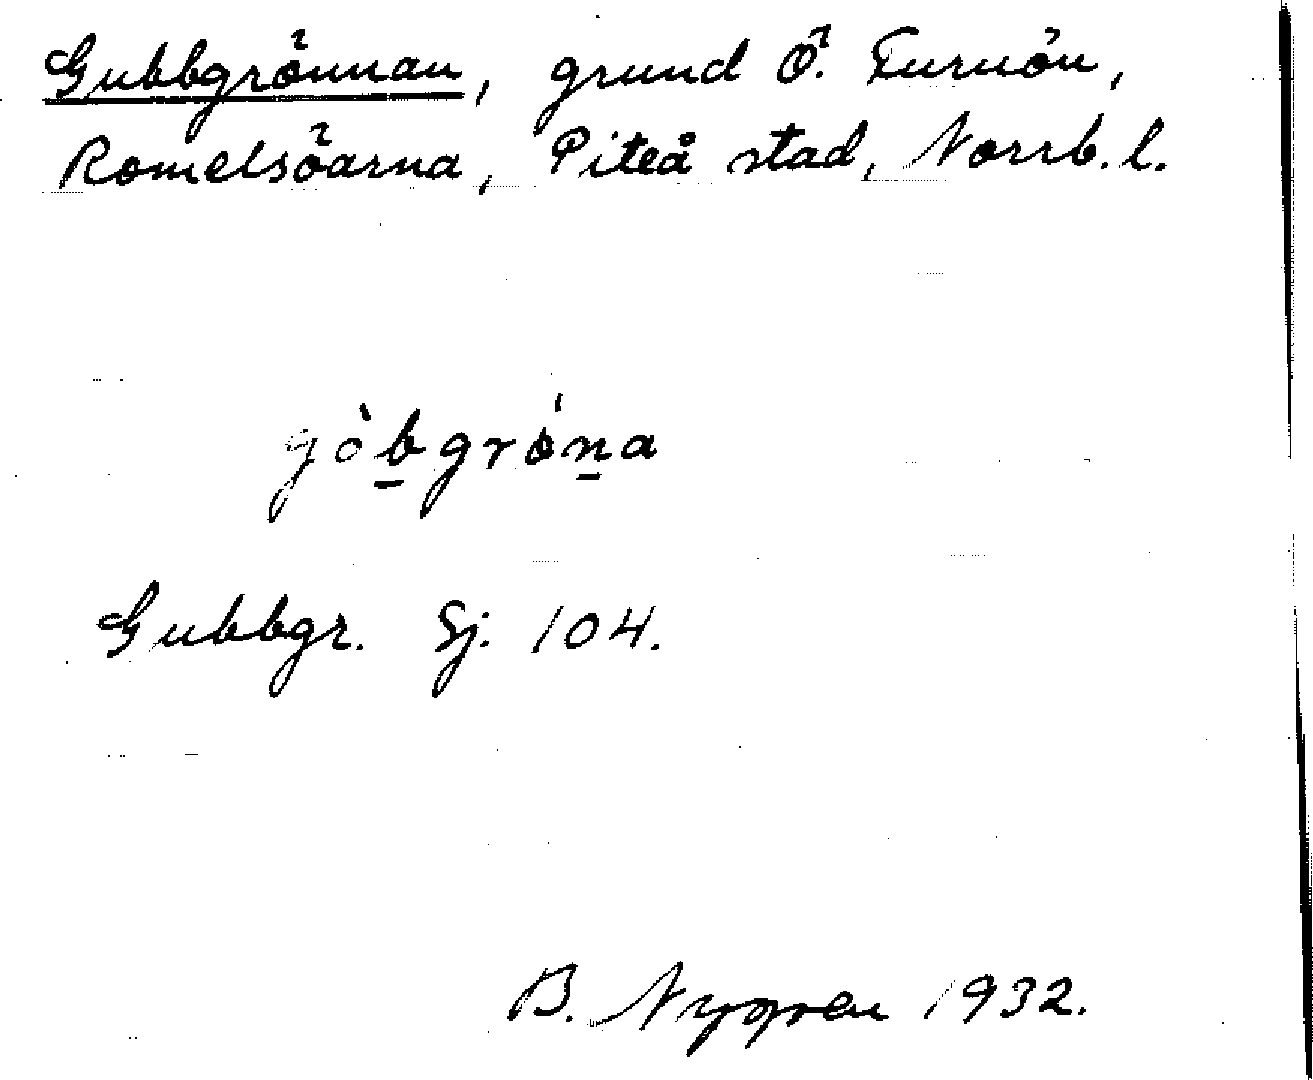 Gubbgrönnan, grund Ö. Furuön,
Romelsöarna, Piteå stad, Norrb. l.
gòbgróna
Gubbgr. Sj. 104.
B. Nygren 1932.